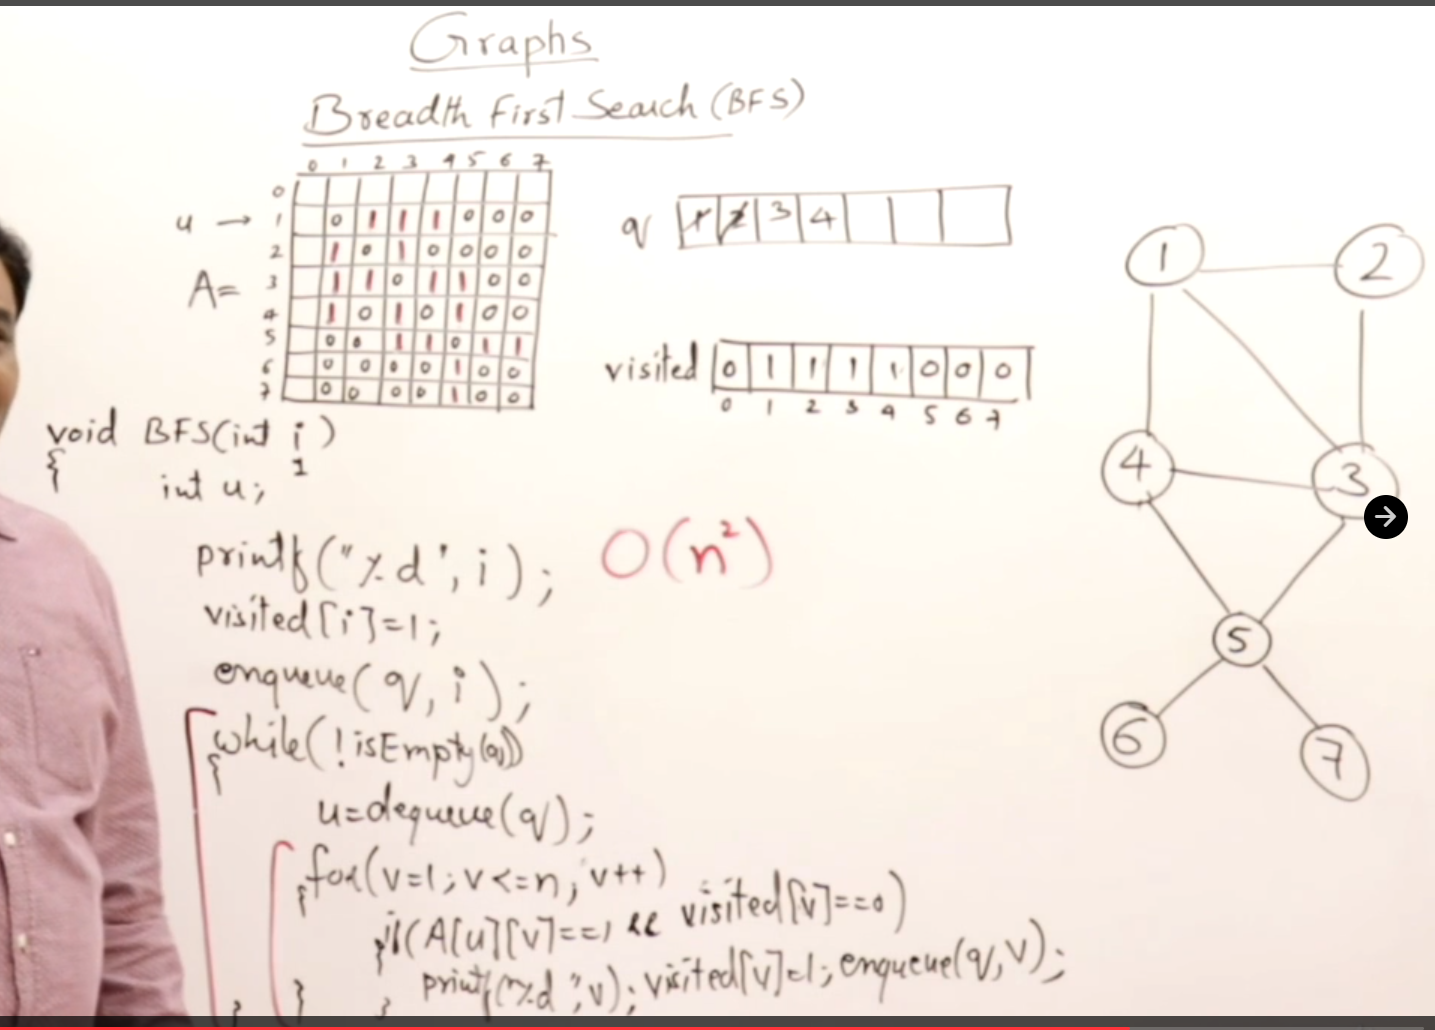 Graphs
Breadth First Search (BFS)
0 1 2 3 4 5 6 7
0
u → 1 0 1 1 1 0 0 0
2 1 0 1 0 0 0 0
A= 3 1 1 0 1 1 0 0
4 1 0 1 0 1 0 0
5 0 0 1 1 0 1 1
6 0 0 0 0 1 0 0
7 0 0 0 0 1 0 0
q 1 2 3 4
visited 0 1 1 1 1 0 0 0
0 1 2 3 4 5 6 7
1 2
4 3
5
6 7
void BFS(int i)
1
{ int u;
printf("%d", i);
visited[i]=1;
enqueue(q, i);
O(n²)
while(!isEmpty(q))
{
u=dequeue(q);
for(v=1; v<=n; v++)
{
if(A[u][v]==1 && visited[v]==0)
{
printf("%d", v); visited[v]=1; enqueue(q,v);
} } }